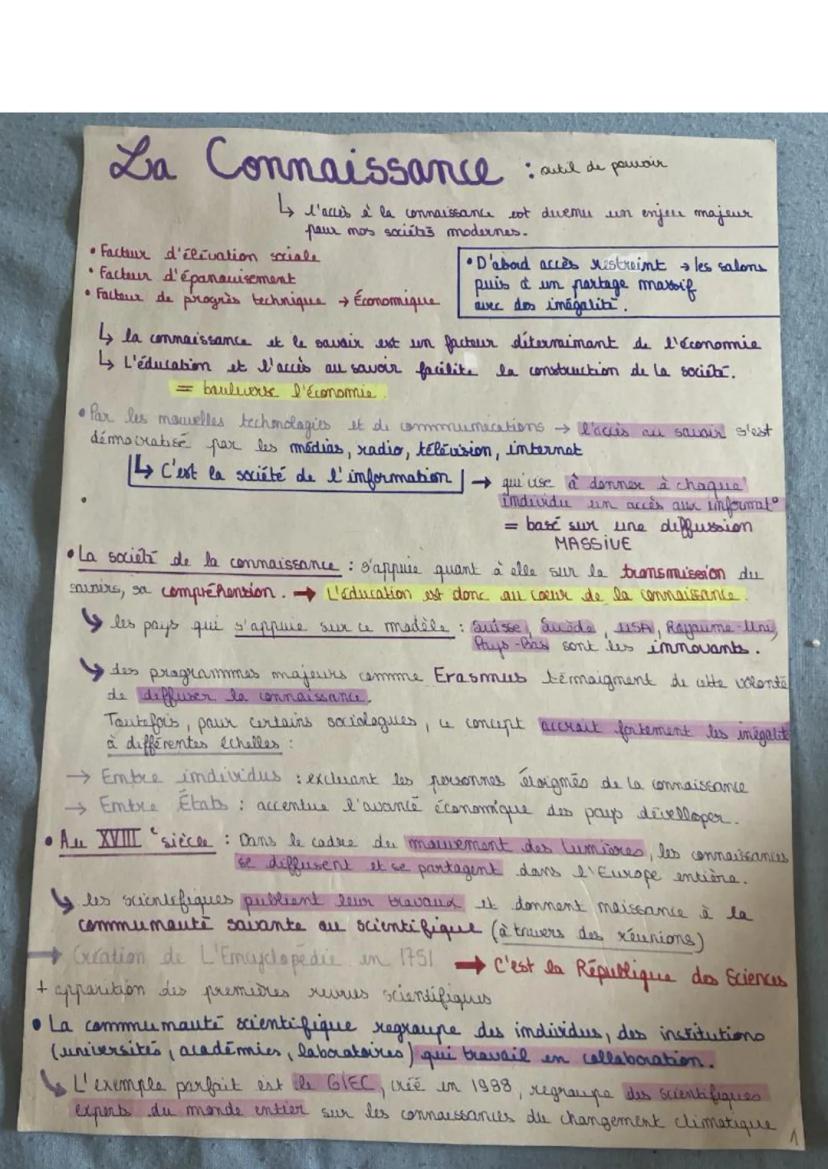 La Connaissance : outil de pouvoir
↳ l'accès à la connaissance est devenu un enjeu majeur
pour nos sociétés modernes.
• Facteur d'élévation sociale
• Facteur d'épanouissement
• Facteur de progrès technique → Économique
• D'abord accès restreint → les salons
puis à un partage massif
avec des inégalité.
↳ la connaissance et le savoir est un facteur déterminant de l'économie
↳ L'éducation et l'accès au savoir facilite la construction de la société.
= bouluverse l'économie.
• Par les nouvelles technologies et de communications → l'accès au savoir s'est
démocratisé par les médias, radio, télévision, internet
↳ C'est la société de l'information → qui vise à donner à chaque
individu un accès aux informat°
= basé sur une diffussion
MASSIVE
• La société de la connaissance : s'appuie quant à elle sur la transmission du
savoirs, sa compréhension. → L'éducation est donc au coeur de la connaissance.
↳ les pays qui s'appuie sur ce modèle : Suisse, Suède, USA, Royaume-Uni,
Pays-Bas sont les innovants.
↳ des programmes majeurs comme Erasmus témoignent de cette volonté
de diffuser la connaissance.
Toutefois, pour certains sociologues, ce concept accroit fortement les inégalit
à différentes échelles :
→ Entre individus : excluant les personnes éloignés de la connaissance
→ Entre États : accentue l'avancé économique des pays développer.
• Au XVIIIe siècle : Dans le cadre du mouvement des lumières, les connaissances
se diffusent et se partagent dans l'Europe entière.
↳ les scientifiques publient leur travaux et donnent naissance à la
communauté savante ou scientifique (à travers des réunions)
→ Création de L'Encyclopédie en 1751 → C'est la République des Sciences
+ apparition des premières revues scientifiques
• La communauté scientifique regroupe des individus, des institutions
(universités, académies, laboratoires) qui travail en collaboration.
↳ L'exemple parfait est le GIEC, créé en 1988, regroupe des scientifiques
experts du monde entier sur les connaissances du changement climatique
1